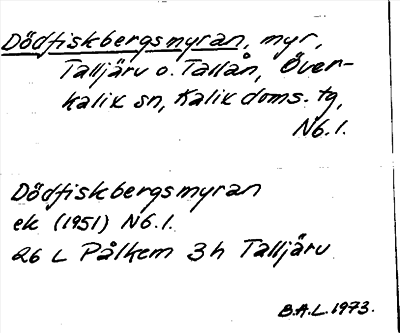 Dödfiskbergsmyran, myr,
Talljärv o. Tallån, Över-
kalix sn, Kalix doms. tg,
Nb.l.
Dödfiskbergsmyran
ek (1951) Nb.l.
26 L Pålkem 3h Talljärv
B.A.L. 1973.